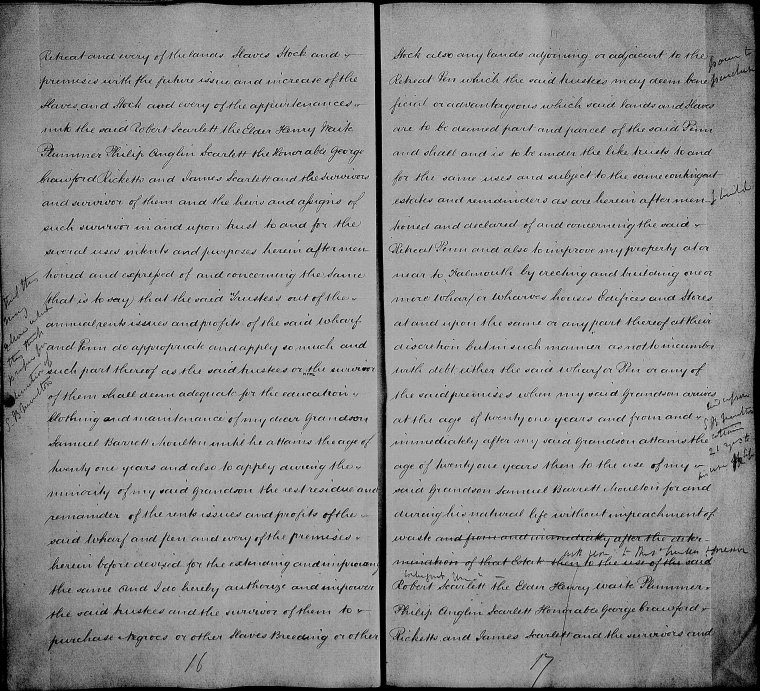 Retreat and every of the lands Slaves Stock and
premises with the future issue and increase of the
Slaves and Stock and every of the appurtenances
unto the said Robert Scarlett the Elder Henry Waite
Plummer Philip Anglin Scarlett the Honorable George
Crawford Ricketts and James Scarlett and the survivors
and survivor of them and the heirs and assigns of
such survivor in and upon trust to and for the
several uses intents and purposes herein after men
tioned and expressed of and concerning the same
that is to say that the said Trustees out of the
annual rents issues and profits of the said wharf
and Penn do appropriate and apply so much and
such part thereof as the said trustees or the survivor
of them shall deem adequate for the education
Clothing and maintenance of my dear Grandson
Samuel Barrett Moulton until he attains the age of
twenty one years and also to apply during the
minority of my said Grandson the rest residue and
remainder of the rents issues and profits of the
said wharf and pen and every of the premises
herein before devised for the extending and improving
the same And I do hereby authorize and impower
the said trustees and the survivor of them to
purchase Negroes or other Slaves Breeding or other
16
Stock also any lands adjoining or adjacent to the
Retreat Pen which the said trustees may deem bene
ficial or advantageous which said lands and Slaves
are to be deemed part and parcel of the said Penn
and shall and is to be under the like trusts to and
for the same uses and subject to the same contingent
estates and remainders as are herein after men
tioned and declared of and concerning the said
Retreat Penn and also to improve my property at or
near to Falmouth by erecting and building one or
more wharf or wharves houses Edifices and Stores
at and upon the same or any part thereof at their
discretion but in such manner as not to incumber
with debt either the said wharf or Pen or any of
the said premises when my said Grandson arrives
at the age of twenty one years and from and
immediately after my said Grandson attains the
age of twenty one years then to the use of my
said Grandson Samuel Barrett Moulton for and
during his natural life without impeachment of
waste and from and immediately after the deter
mination of that Estate then to the use of the said
Robert Scarlett the Elder Henry Waite Plummer
Philip Anglin Scarlett Honorable George Crawford
Ricketts and James Scarlett and the survivors and
17
power to
purchase
& build
S B Moulton
21 years